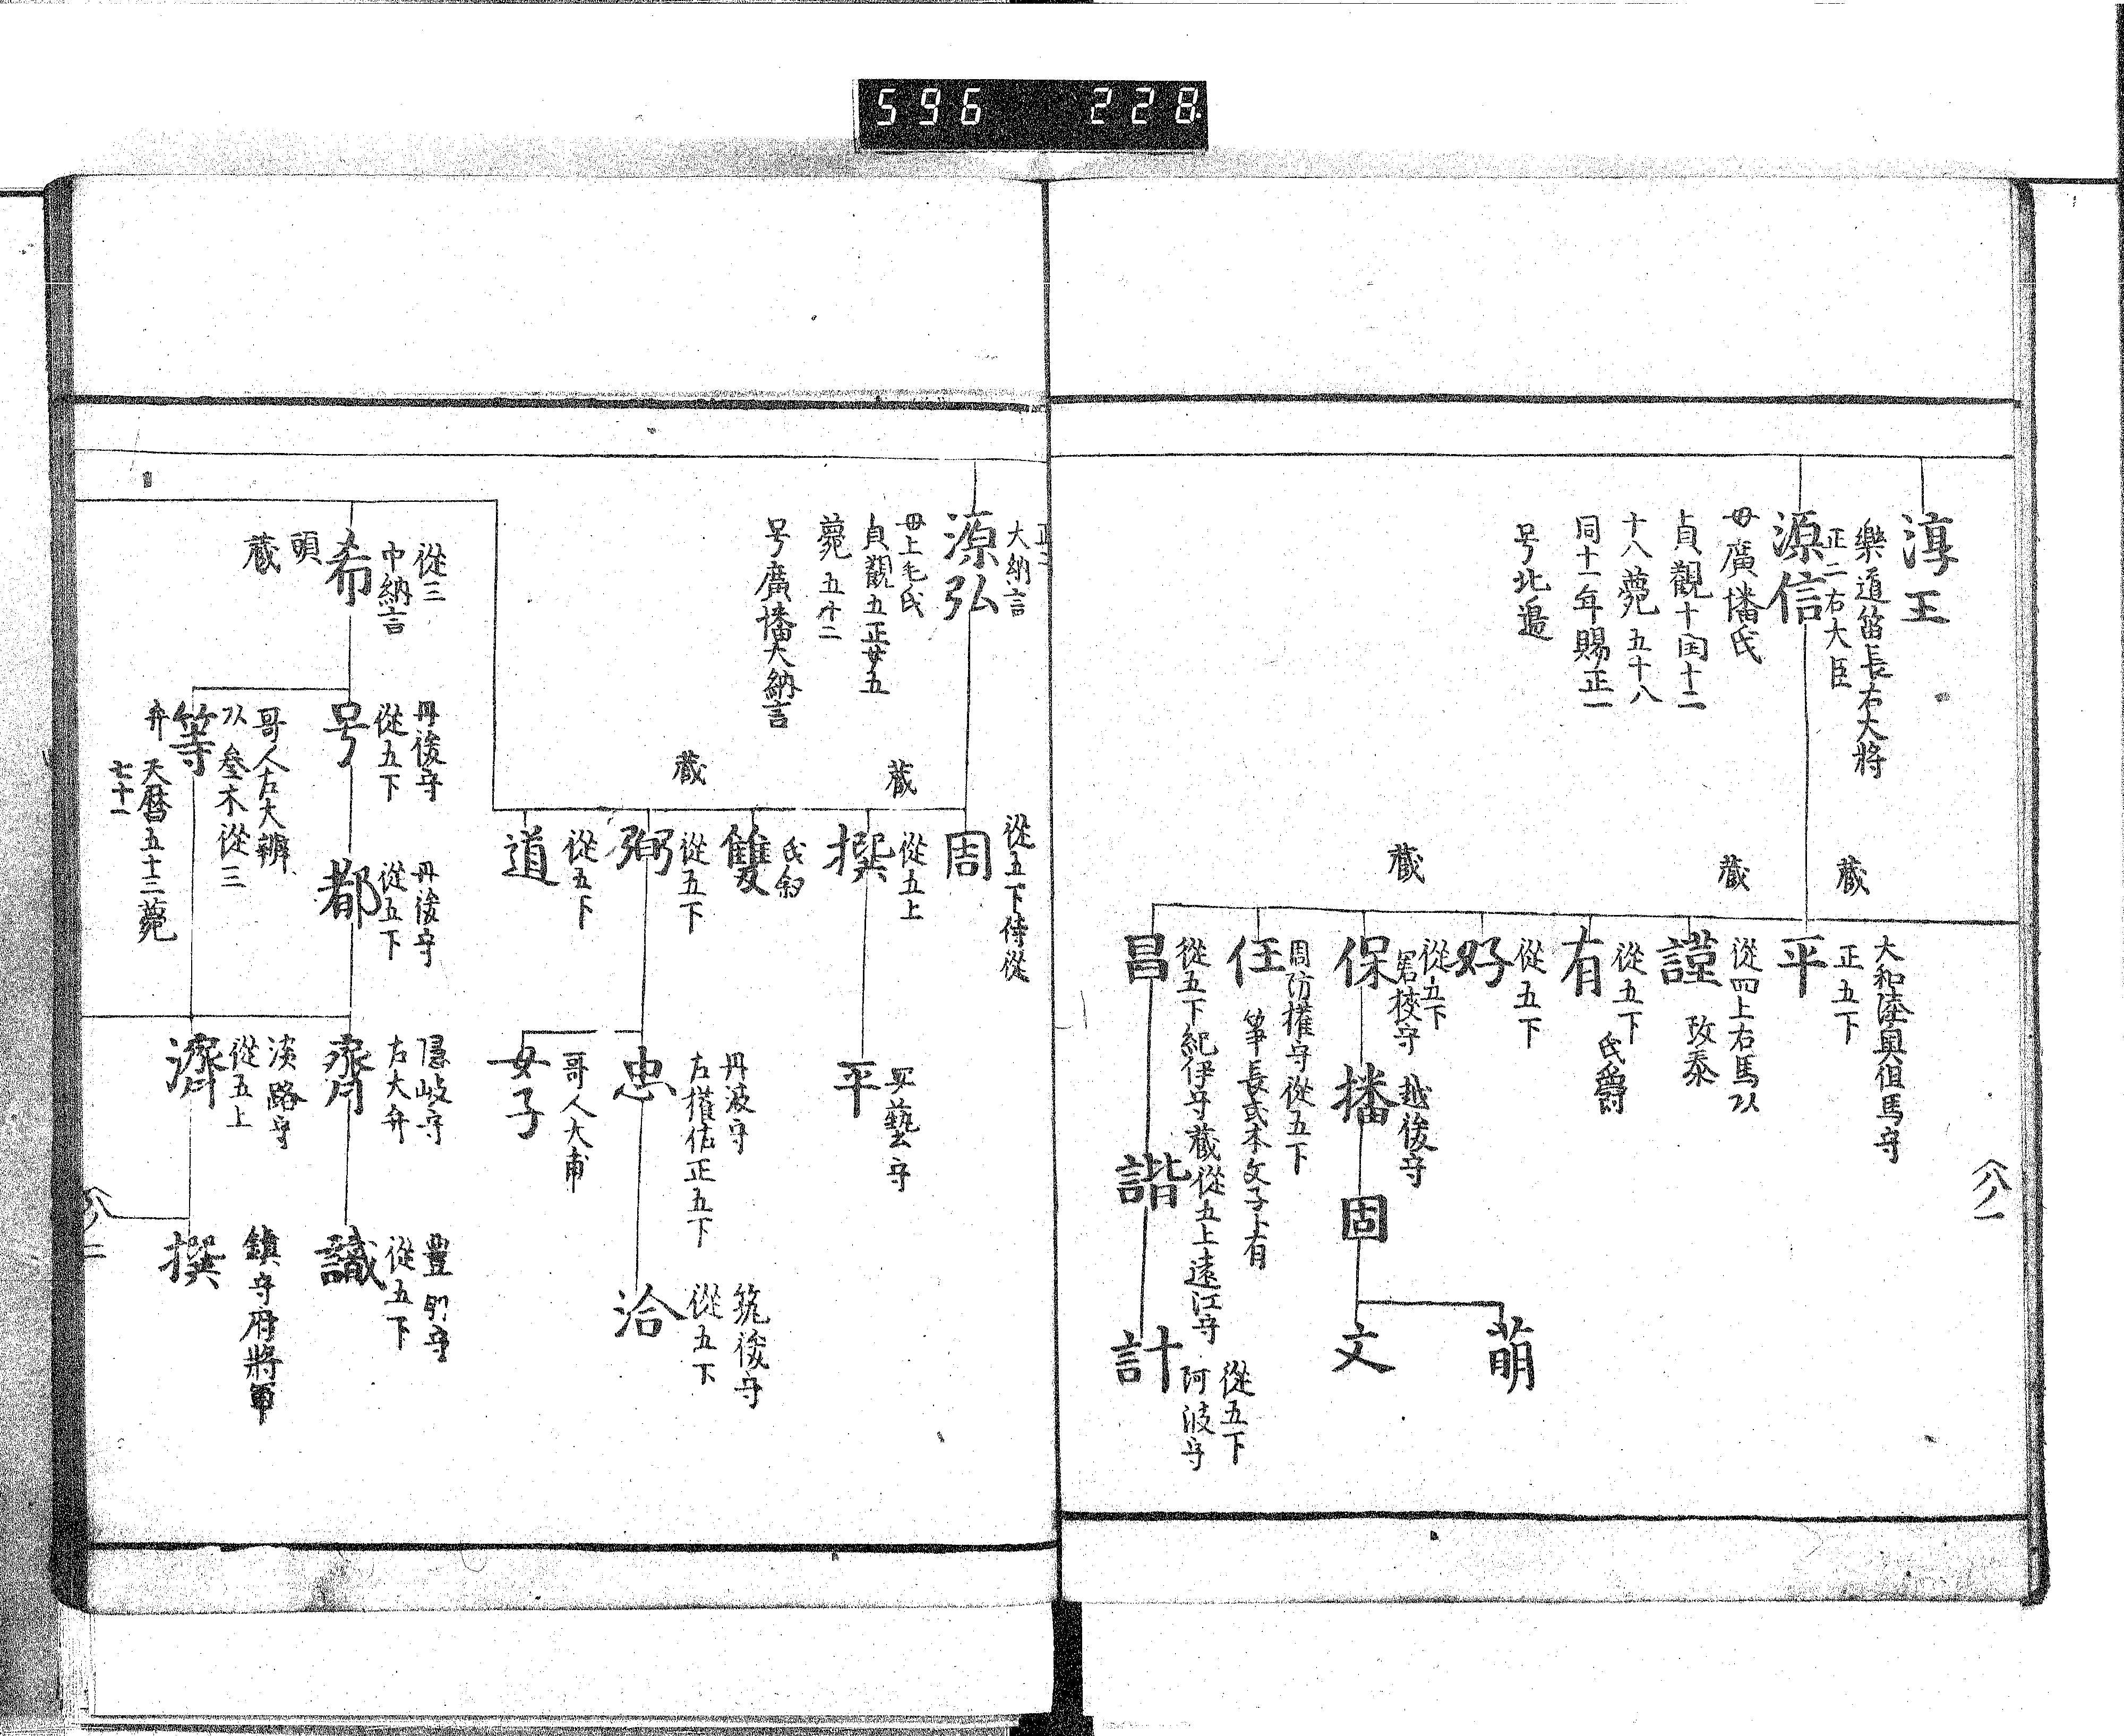 596 228
淳王
源信
正二右大臣
樂道笛長右大将
母廣幡氏
貞觀十閏十二
十八薨五十八
同十一年賜正一
号北邉
藏
藏
藏
平
正五下
大和陸奥但馬守
謹
從四上右馬以
玫泰
有
從五下
氏爵
好
從五下
保
從五下
播
越後守
固
萌
文
任
周防權守從五下
筝長式木文子上有
昌
從五下紀伊守
諧
藏從五上遠江守
計
從五下
阿波守
八ノ一
源弘
正二
大納言
母上毛氏
貞觀五正廿五
薨五十二
号廣幡大納言
藏
藏
周
從五下侍從
撰
從五上
平
安藝守
雙
氏爵
弼
從五下
忠
丹波守
左權佐正五下
洽
筑後守
從五下
女子
哥人大甫
道
從五下
希
從三
中納言
頭
藏
号
丹後守
從五下
都
丹後守
從五下
齊
隠岐守
右大弁
識
豊前守
從五下
等
哥人右大辨
以叄木從三
弁
天暦五十三薨
七十一
濟
淡路守
從五上
撰
鎮守府將軍
八ノ二